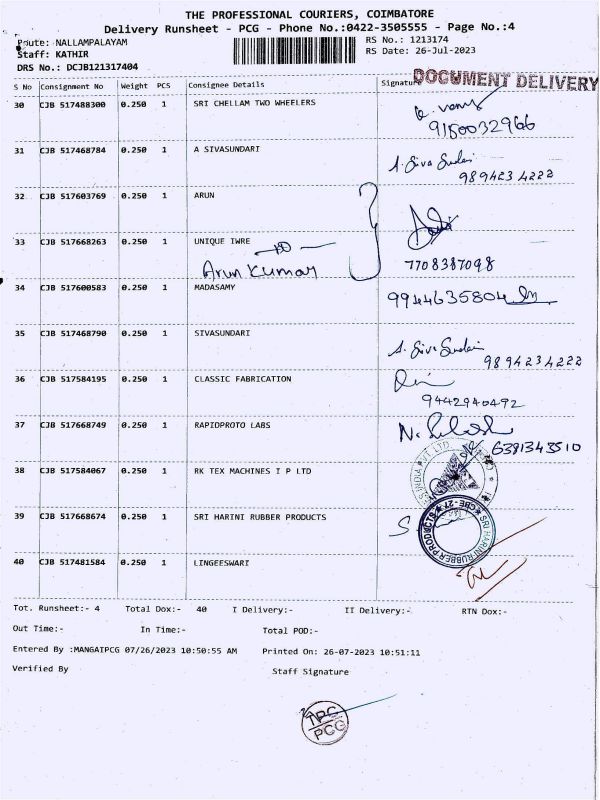 THE PROFESSIONAL COURIERS, COIMBATORE
Delivery Runsheet - PCG - Phone No.:0422-3505555 - Page No.:4
Route: NALLAMPALAYAM RS No.: 1213174
Staff: KATHIR RS Date: 26-Jul-2023
DRS No.: DCJB121317404
DOCUMENT DELIVERY
S No Consignment No Weight PCS Consignee Details Signature
30 CJB 517488300 0.250 1 SRI CHELLAM TWO WHEELERS
9150032966
31 CJB 517468784 0.250 1 A SIVASUNDARI
A. Siva Sundari
9894234222
32 CJB 517603769 0.250 1 ARUN
33 CJB 517668263 0.250 1 UNIQUE IWRE
Arun Kumar
7708387098
34 CJB 517600583 0.250 1 MADASAMY
9944635804
35 CJB 517468790 0.250 1 SIVASUNDARI
A. Siva Sundari
9894234222
36 CJB 517584195 0.250 1 CLASSIC FABRICATION
9442940492
37 CJB 517668749 0.250 1 RAPIDPROTO LABS
6381343510
38 CJB 517584067 0.250 1 RK TEX MACHINES I P LTD
INDIA PVT LTD
39 CJB 517668674 0.250 1 SRI HARINI RUBBER PRODUCTS
SRI HARINI RUBBER PRODUCTS CBE-27
40 CJB 517481584 0.250 1 LINGEESWARI
Tot. Runsheet:- 4 Total Dox:- 40 I Delivery:- II Delivery:- RTN Dox:-
Out Time:- In Time:- Total POD:-
Entered By :MANGAIPCG 07/26/2023 10:50:55 AM Printed On: 26-07-2023 10:51:11
Verified By Staff Signature
TPC
PCG